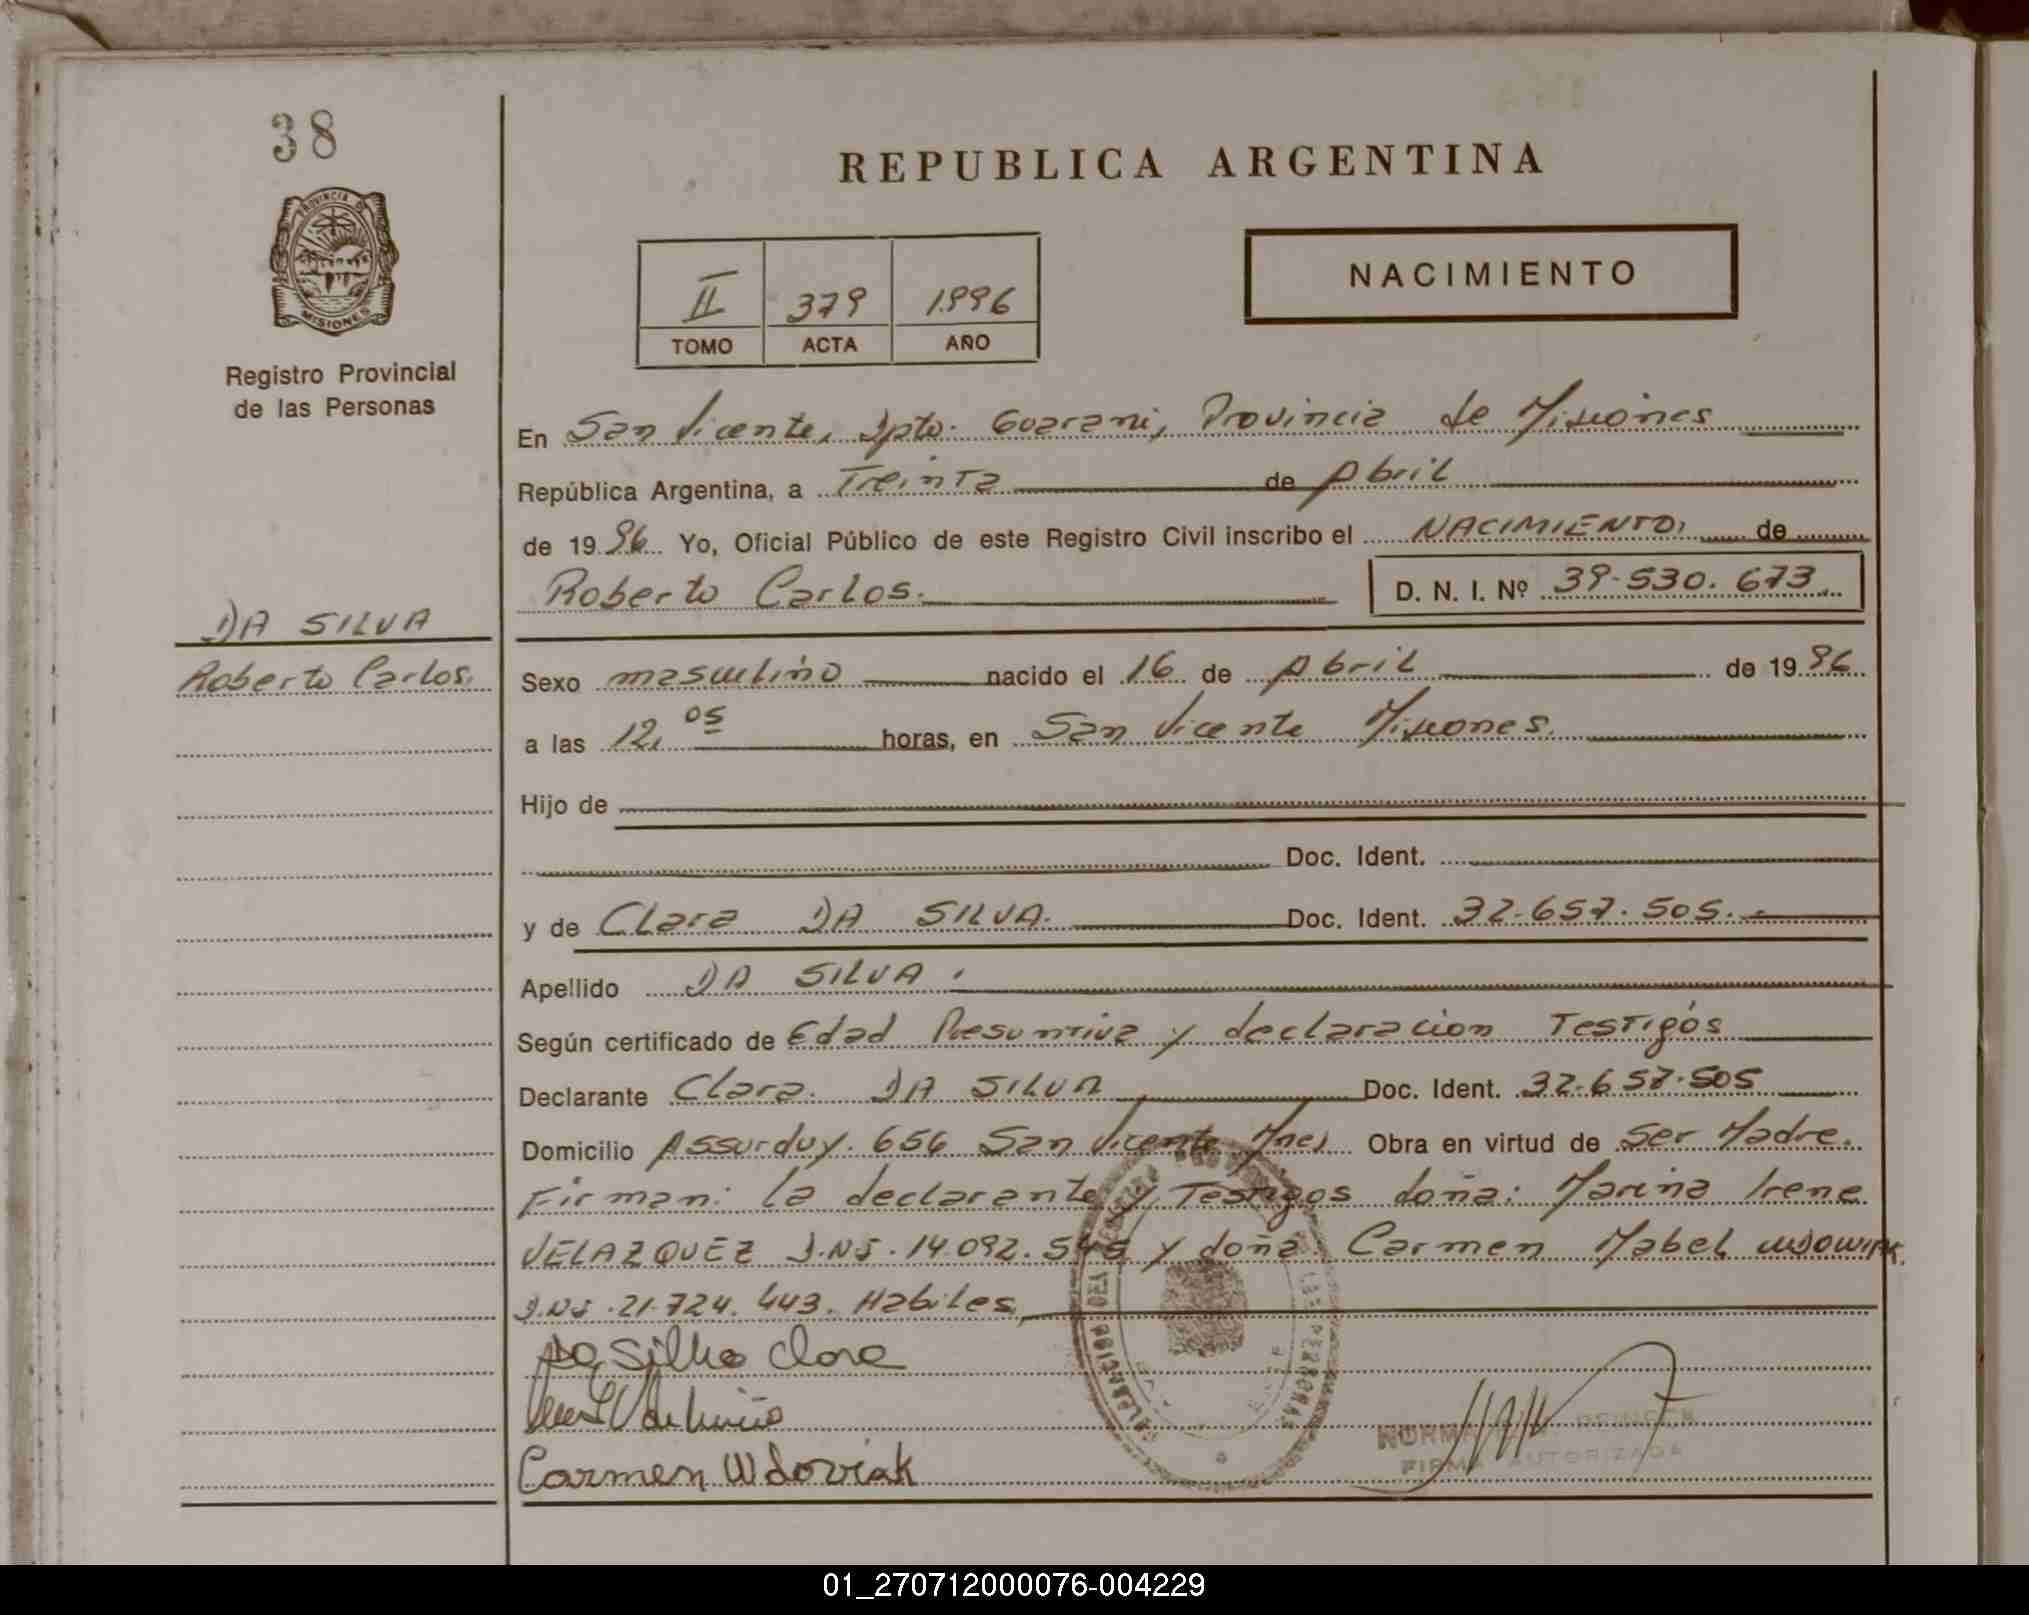 38
REPUBLICA ARGENTINA
NACIMIENTO
PROVINCIA DE
MISIONES
Registro Provincial
de las Personas
II 379 1996
TOMO ACTA AÑO
En San Vicente, Dpto. Guarani, Provincia de Misiones
República Argentina, a Treinta de Abril
de 1996 Yo, Oficial Público de este Registro Civil inscribo el NACIMIENTO, de
Roberto Carlos. D. N. I. Nº 39.530.673
DA SILVA
Roberto Carlos.
Sexo masculino nacido el 16 de Abril de 1996
a las 12,05 horas, en San Vicente Misiones.
Hijo de
Doc. Ident.
y de Clara DA SILVA. Doc. Ident. 32.657.505.-
Apellido DA SILVA.
Según certificado de Edad Presuntiva y declaracion Testigos
Declarante Clara DA SILVA Doc. Ident. 32.657.505
Domicilio Assurduy. 656 San Vicente Mnes Obra en virtud de Ser Madre.
Firman: la declarante y Testigos doña: Marina Irene
VELAZQUEZ D.N.I. 14.092.545 y doña Carmen Mabel WDOWIAK.
D.N.I. 21.724.443. Habiles,
Da Silva Clara
Carmen Wdoviak
NORMA
FIRMA AUTORIZADA
01_270712000076-004229